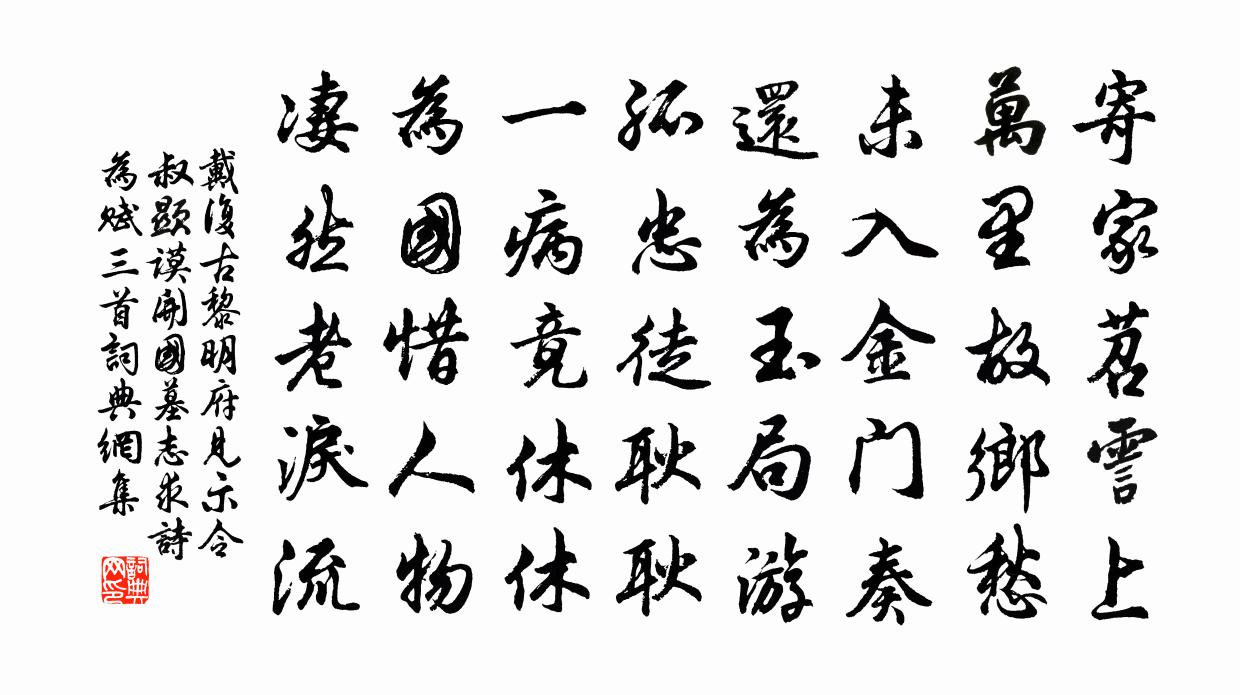 寄家苕霅上
萬里故鄉愁
未入金門奏
還為玉局游
孤忠徒耿耿
一病竟休休
為國惜人物
淒然老淚流
戴復古黎明府見示令
叔顯謨開國墓志求詩
為賦三首詞典網集
詞典網印